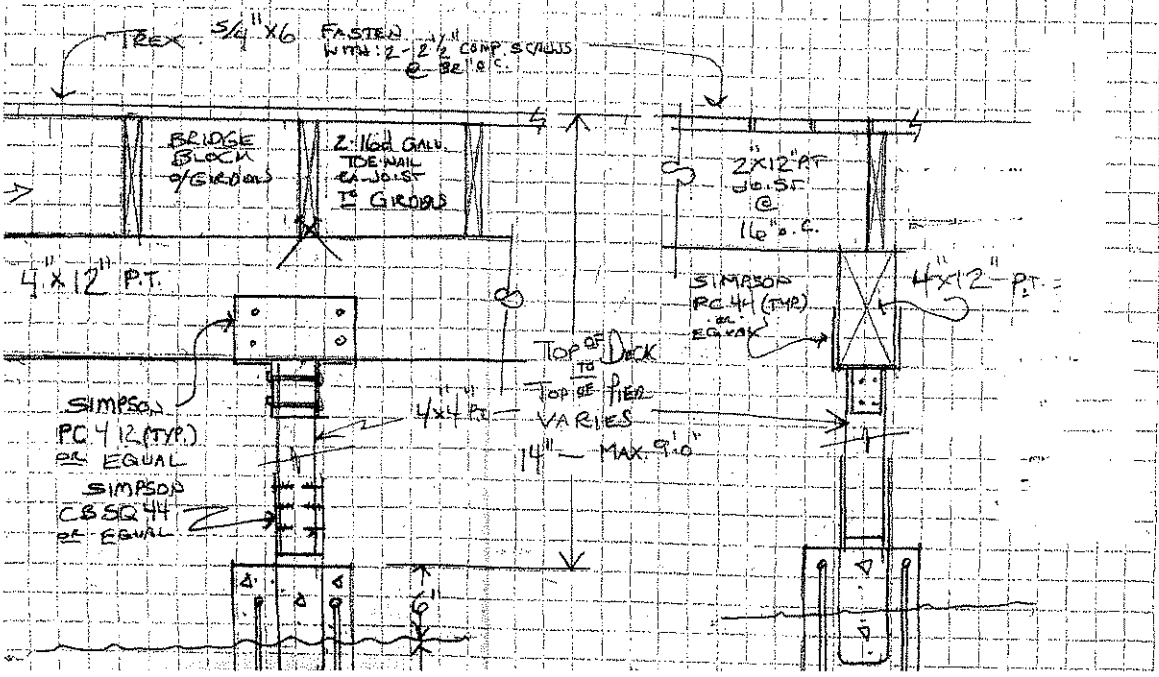 TREX 5/4" X 6 FASTEN
WITH: 2 - 2 1/2" COMP. SCREWS
@ O.C.
BRIDGE
BLOCK
O/GIRDERS
2-16d GALV.
TOE-NAIL
EA. JOIST
TO GIRDERS
2"X12" PT
JOIST
@
16" O.C.
4"X12" P.T.
SIMPSON
PC 44 (TYP.)
OR
EQUAL
4"X12" P.T.
TOP OF DECK
TO
TOP OF PIER
VARIES
14" — MAX. 9'-0"
SIMPSON
PC 412 (TYP.)
OR EQUAL
4"X4" PT
SIMPSON
CBSQ 44
OR EQUAL
6"